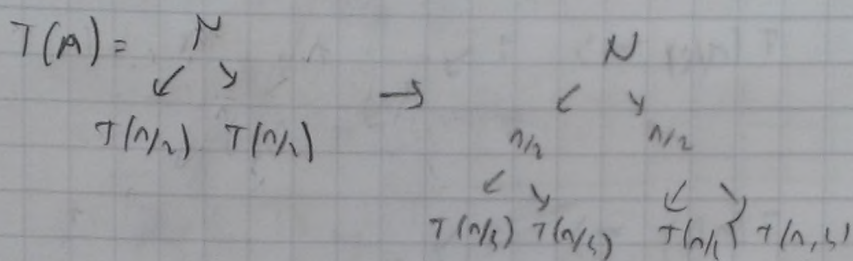 T(n) = N
N
T(n/2) T(n/2) → n/2 n/2
T(n/4) T(n/4) T(n/4) T(n/4)